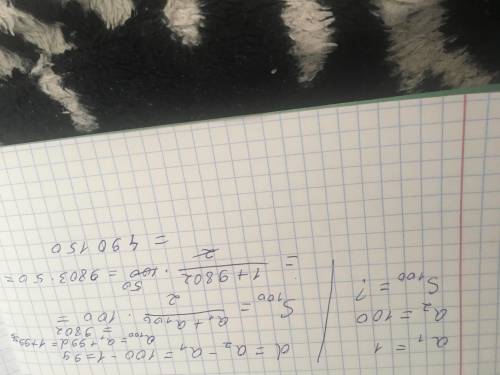 a₁ = 1
a₂ = 100
S₁₀₀ = ?
d = a₂ - a₁ = 100 - 1 = 99
a₁₀₀ = a₁ + 99d = 1+99·99
= 9802
S₁₀₀ = (a₁ + a₁₀₀)/2 · 100 =
= (1 + 9802)/2 · 100 50 = 9803 · 50 =
= 490 150